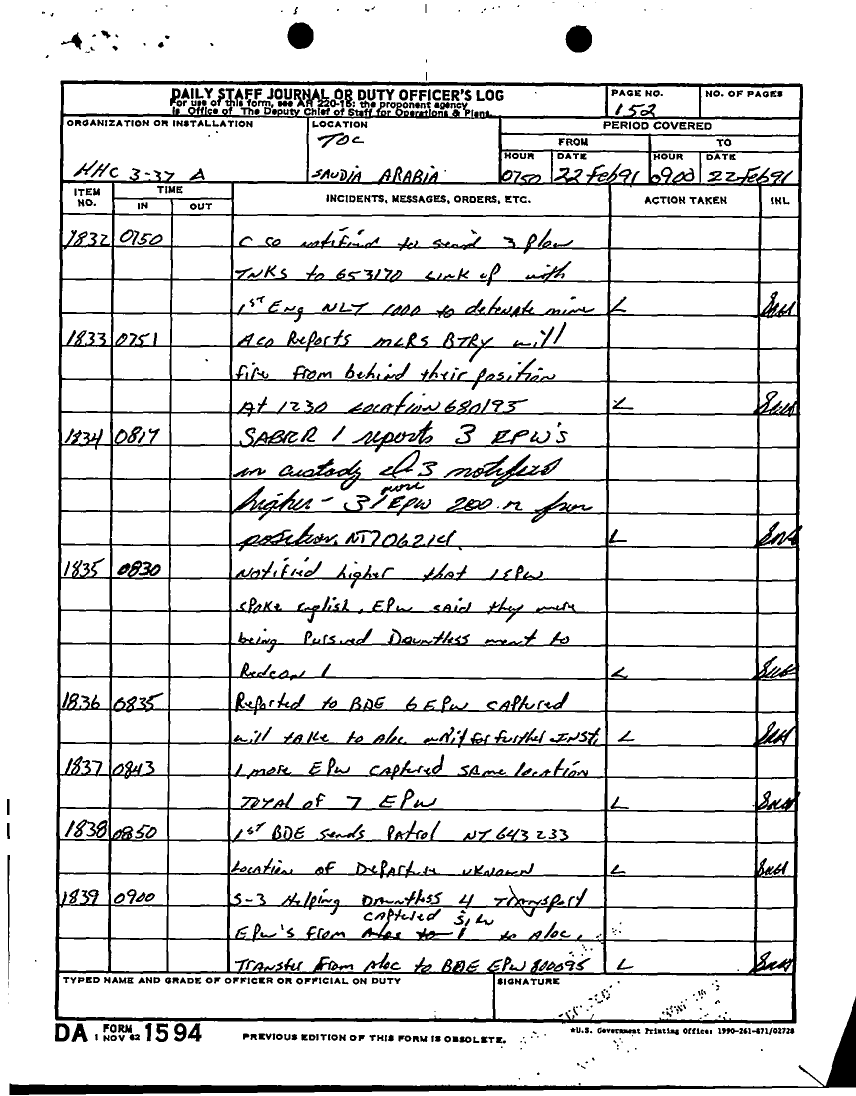 DAILY STAFF JOURNAL OR DUTY OFFICER'S LOG
For use of this form, see AR 220-15: the proponent agency
is Office of The Deputy Chief of Staff for Operations & Plans.
PAGE NO.
152
NO. OF PAGES
ORGANIZATION OR INSTALLATION
HHC 3-37 A
LOCATION
TOC
SAUDIA ARABIA
PERIOD COVERED
FROM
TO
HOUR
DATE
HOUR
DATE
0750
22 Feb 91
0900
22 Feb 91
ITEM NO.
TIME
IN
OUT
INCIDENTS, MESSAGES, ORDERS, ETC.
ACTION TAKEN
INL
1832 0750 C Co notified to send 3 plow
TNKS to 653170 Link up with
1ST Eng NLT 1000 to detenate mine L
1833 0751 A co Reports MLRS BTRY will
fire from behind their position
At 1230 Location 680195 L
1834 0817 SABER 1 reports 3 EPW'S
in custody 3 notified
more
higher - 3 / EPW 200 m from
position. NT706214. L
1835 0830 Notified higher that 1 EPW
spoke english, EPW said they were
being Pursued Dauntless went to
Redcon 1 L
1836 0835 Reported to BDE 6 EPW captured
will take to Aloc wait for further INST. L
1837 0843 1 more EPW captured same location
TOTAL of 7 EPW L
1838 0850 1ST BDE sends Patrol NT 643233
Location of Departure uknown L
1839 0900 S-3 Helping Dauntless 4 Transport
captured
EPW's from to Aloc,
Transfer From Aloc to BDE EPW 800095 L
TYPED NAME AND GRADE OF OFFICER OR OFFICIAL ON DUTY
SIGNATURE
DA FORM 1594
1 NOV 62
PREVIOUS EDITION OF THIS FORM IS OBSOLETE.
*U.S. Government Printing Office: 1990-261-871/02728